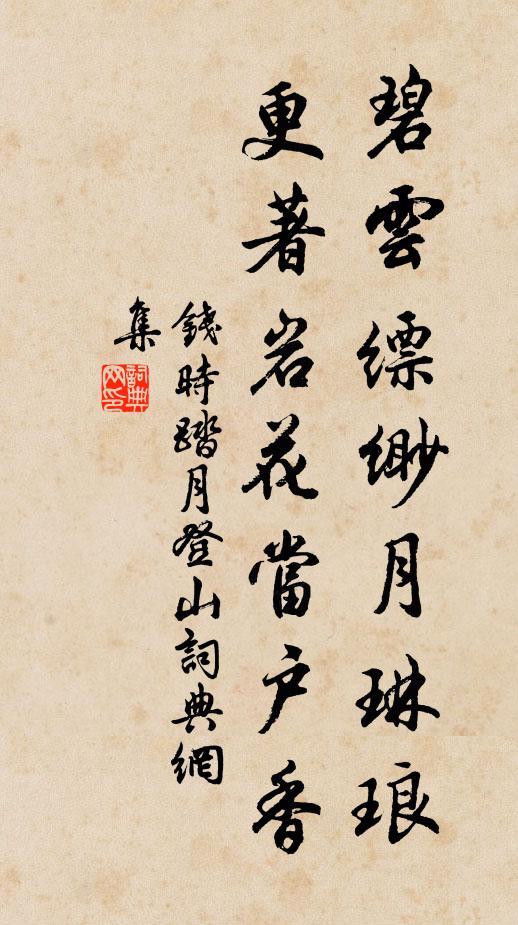 碧雲縹緲月琳琅
更著岩花當户香
錢時踏月登山詞典網
集
詞典
网印